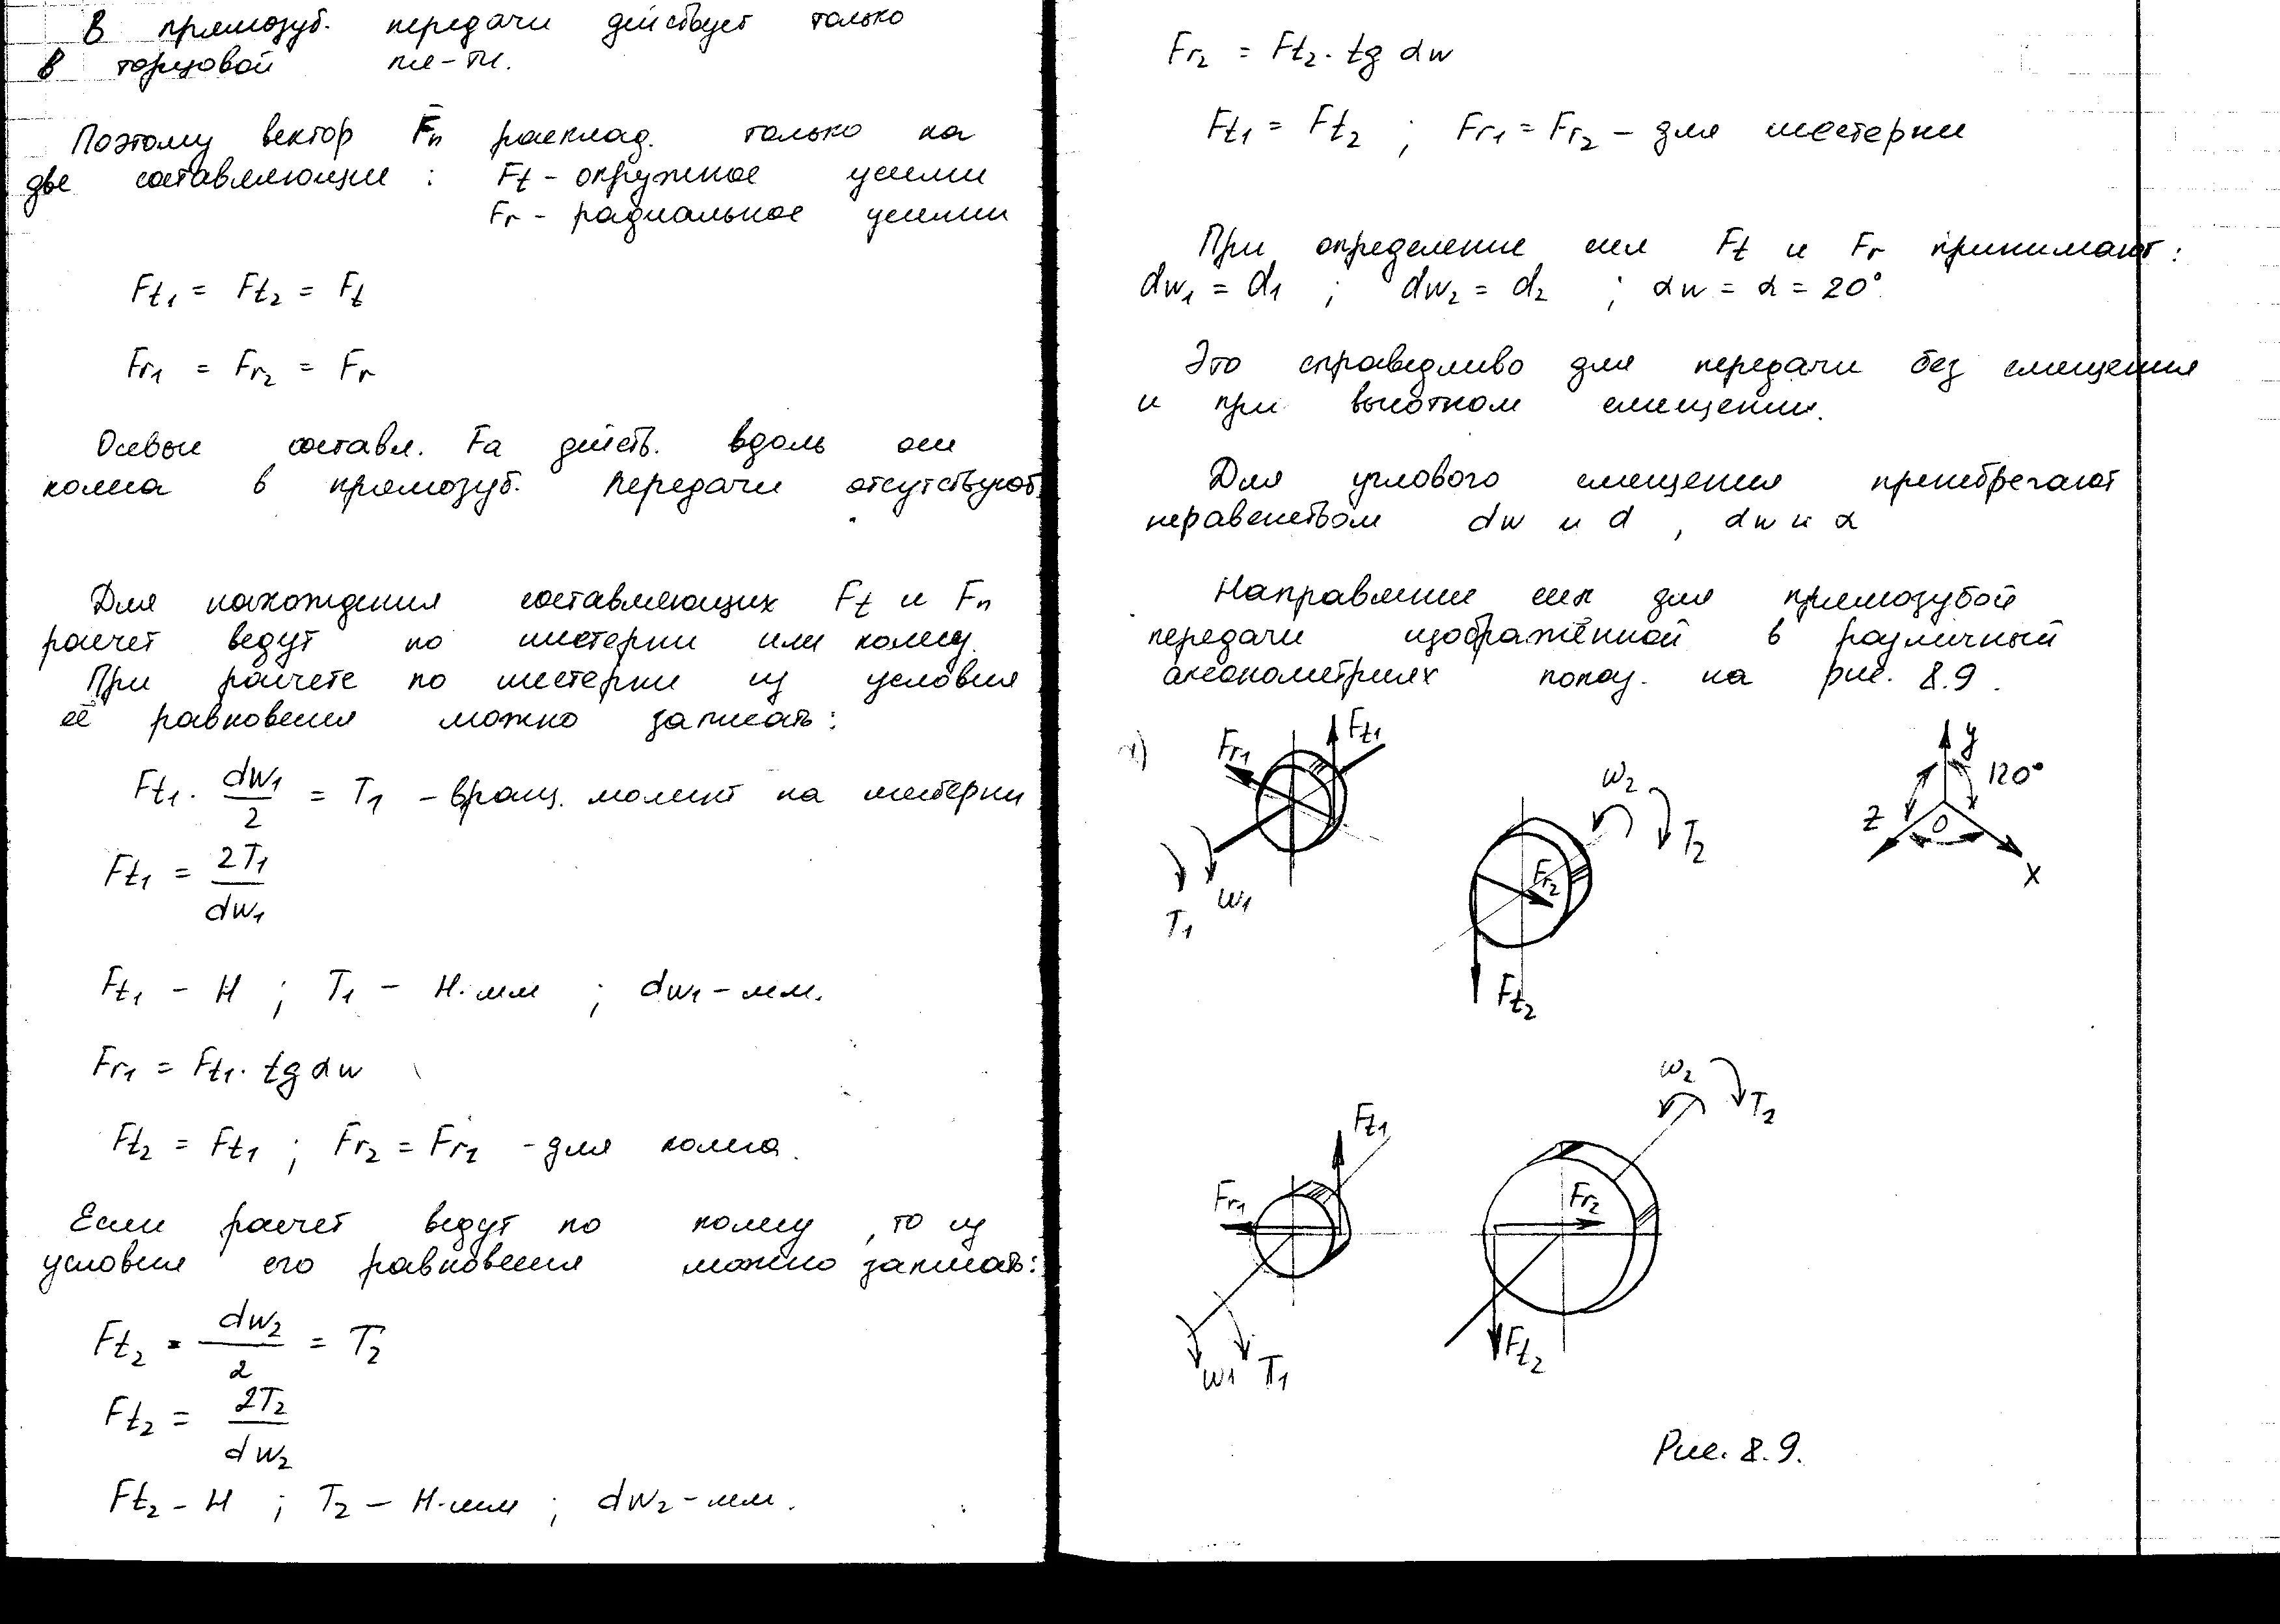 В прямозуб. передачи действует только
в торцовой пл-ти.
Поэтому вектор F̄n расклад. только на
две составляющие : Ft - окружное усилие
Fr - радиальное усилие
Ft1 = Ft2 = Ft
Fr1 = Fr2 = Fr
Осевые составл. Fa действ. вдоль оси
колеса в прямозуб. передачи отсутствуют.
Для нахождения составляющих Ft и Fn
расчет ведут по шестерни или колесу.
При расчете по шестерни из условия
её равновесия можно записать:
Ft1 · dw1/2 = T1 - вращ. момент на шестерни
Ft1 = 2T1/dw1
Ft1 - Н ; T1 - Н·мм ; dw1 - мм.
Fr1 = Ft1 · tg αw
Ft2 = Ft1 ; Fr2 = Fr1 - для колеса.
Если расчет ведут по колесу, то из
условия его равновесия можно записать:
Ft2 · dw2/2 = T2
Ft2 = 2T2/dw2
Ft2 - Н ; T2 - Н·мм ; dw2 - мм.
Fr2 = Ft2 · tg αw
Ft1 = Ft2 ; Fr1 = Fr2 - для шестерни
При определение сил Ft и Fr принимают:
dw1 = d1 ; dw2 = d2 ; αw = α = 20°
Это справедливо для передачи без смещения
и при высотном смещении.
Для углового смещения пренебрегают
неравенством dw и d , αw и α
Направление сил для прямозубой
передачи изображённой в различный
аксонометриях показ. на рис. 8.9.
Fr1 Ft1
T1 w1
w2 T2
Fr2
Ft2
y 120°
z 0 x
Ft1
Fr1
w1 T1
w2 T2
Fr2
Ft2
Рис. 8.9.